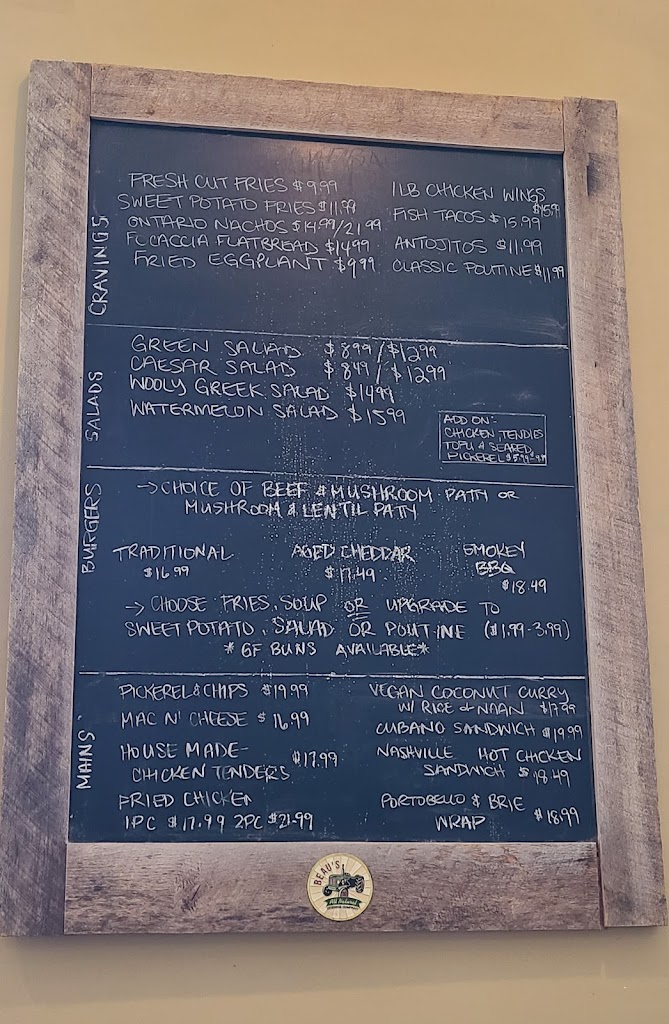 CRAVINGS
FRESH CUT FRIES $9.99
SWEET POTATO FRIES $11.99
ONTARIO NACHOS $14.99/21.99
FOCACCIA FLATBREAD $14.99
FRIED EGGPLANT $9.99
1LB CHICKEN WINGS
FISH TACOS $15.99
ANTOJITOS $11.99
CLASSIC POUTINE $11.99
SALADS
GREEN SALAD $8.99/$12.99
CAESAR SALAD $8.49/$12.99
WOOLY GREEK SALAD $14.99
WATERMELON SALAD $15.99
ADD ON:
CHICKEN TENDIES
TOFU & SEARED
PICKEREL
BURGERS
→CHOICE OF BEEF & MUSHROOM PATTY OR
MUSHROOM & LENTIL PATTY
TRADITIONAL
$16.99
AGED CHEDDAR
$17.49
SMOKEY
BBQ
$18.49
→ CHOOSE FRIES, SOUP OR UPGRADE TO
SWEET POTATO, SALAD OR POUTINE ($1.99-3.99)
*GF BUNS AVAILABLE*
MAINS
PICKEREL & CHIPS $19.99
MAC N' CHEESE $16.99
HOUSE MADE-
CHICKEN TENDERS $17.99
FRIED CHICKEN
1PC $17.99 2PC $21.99
VEGAN COCONUT CURRY
W/ RICE & NAAN $17.99
CUBANO SANDWICH $19.99
NASHVILLE HOT CHICKEN
SANDWICH $18.49
PORTOBELLO & BRIE
WRAP $18.99
BEAU'S
All Natural